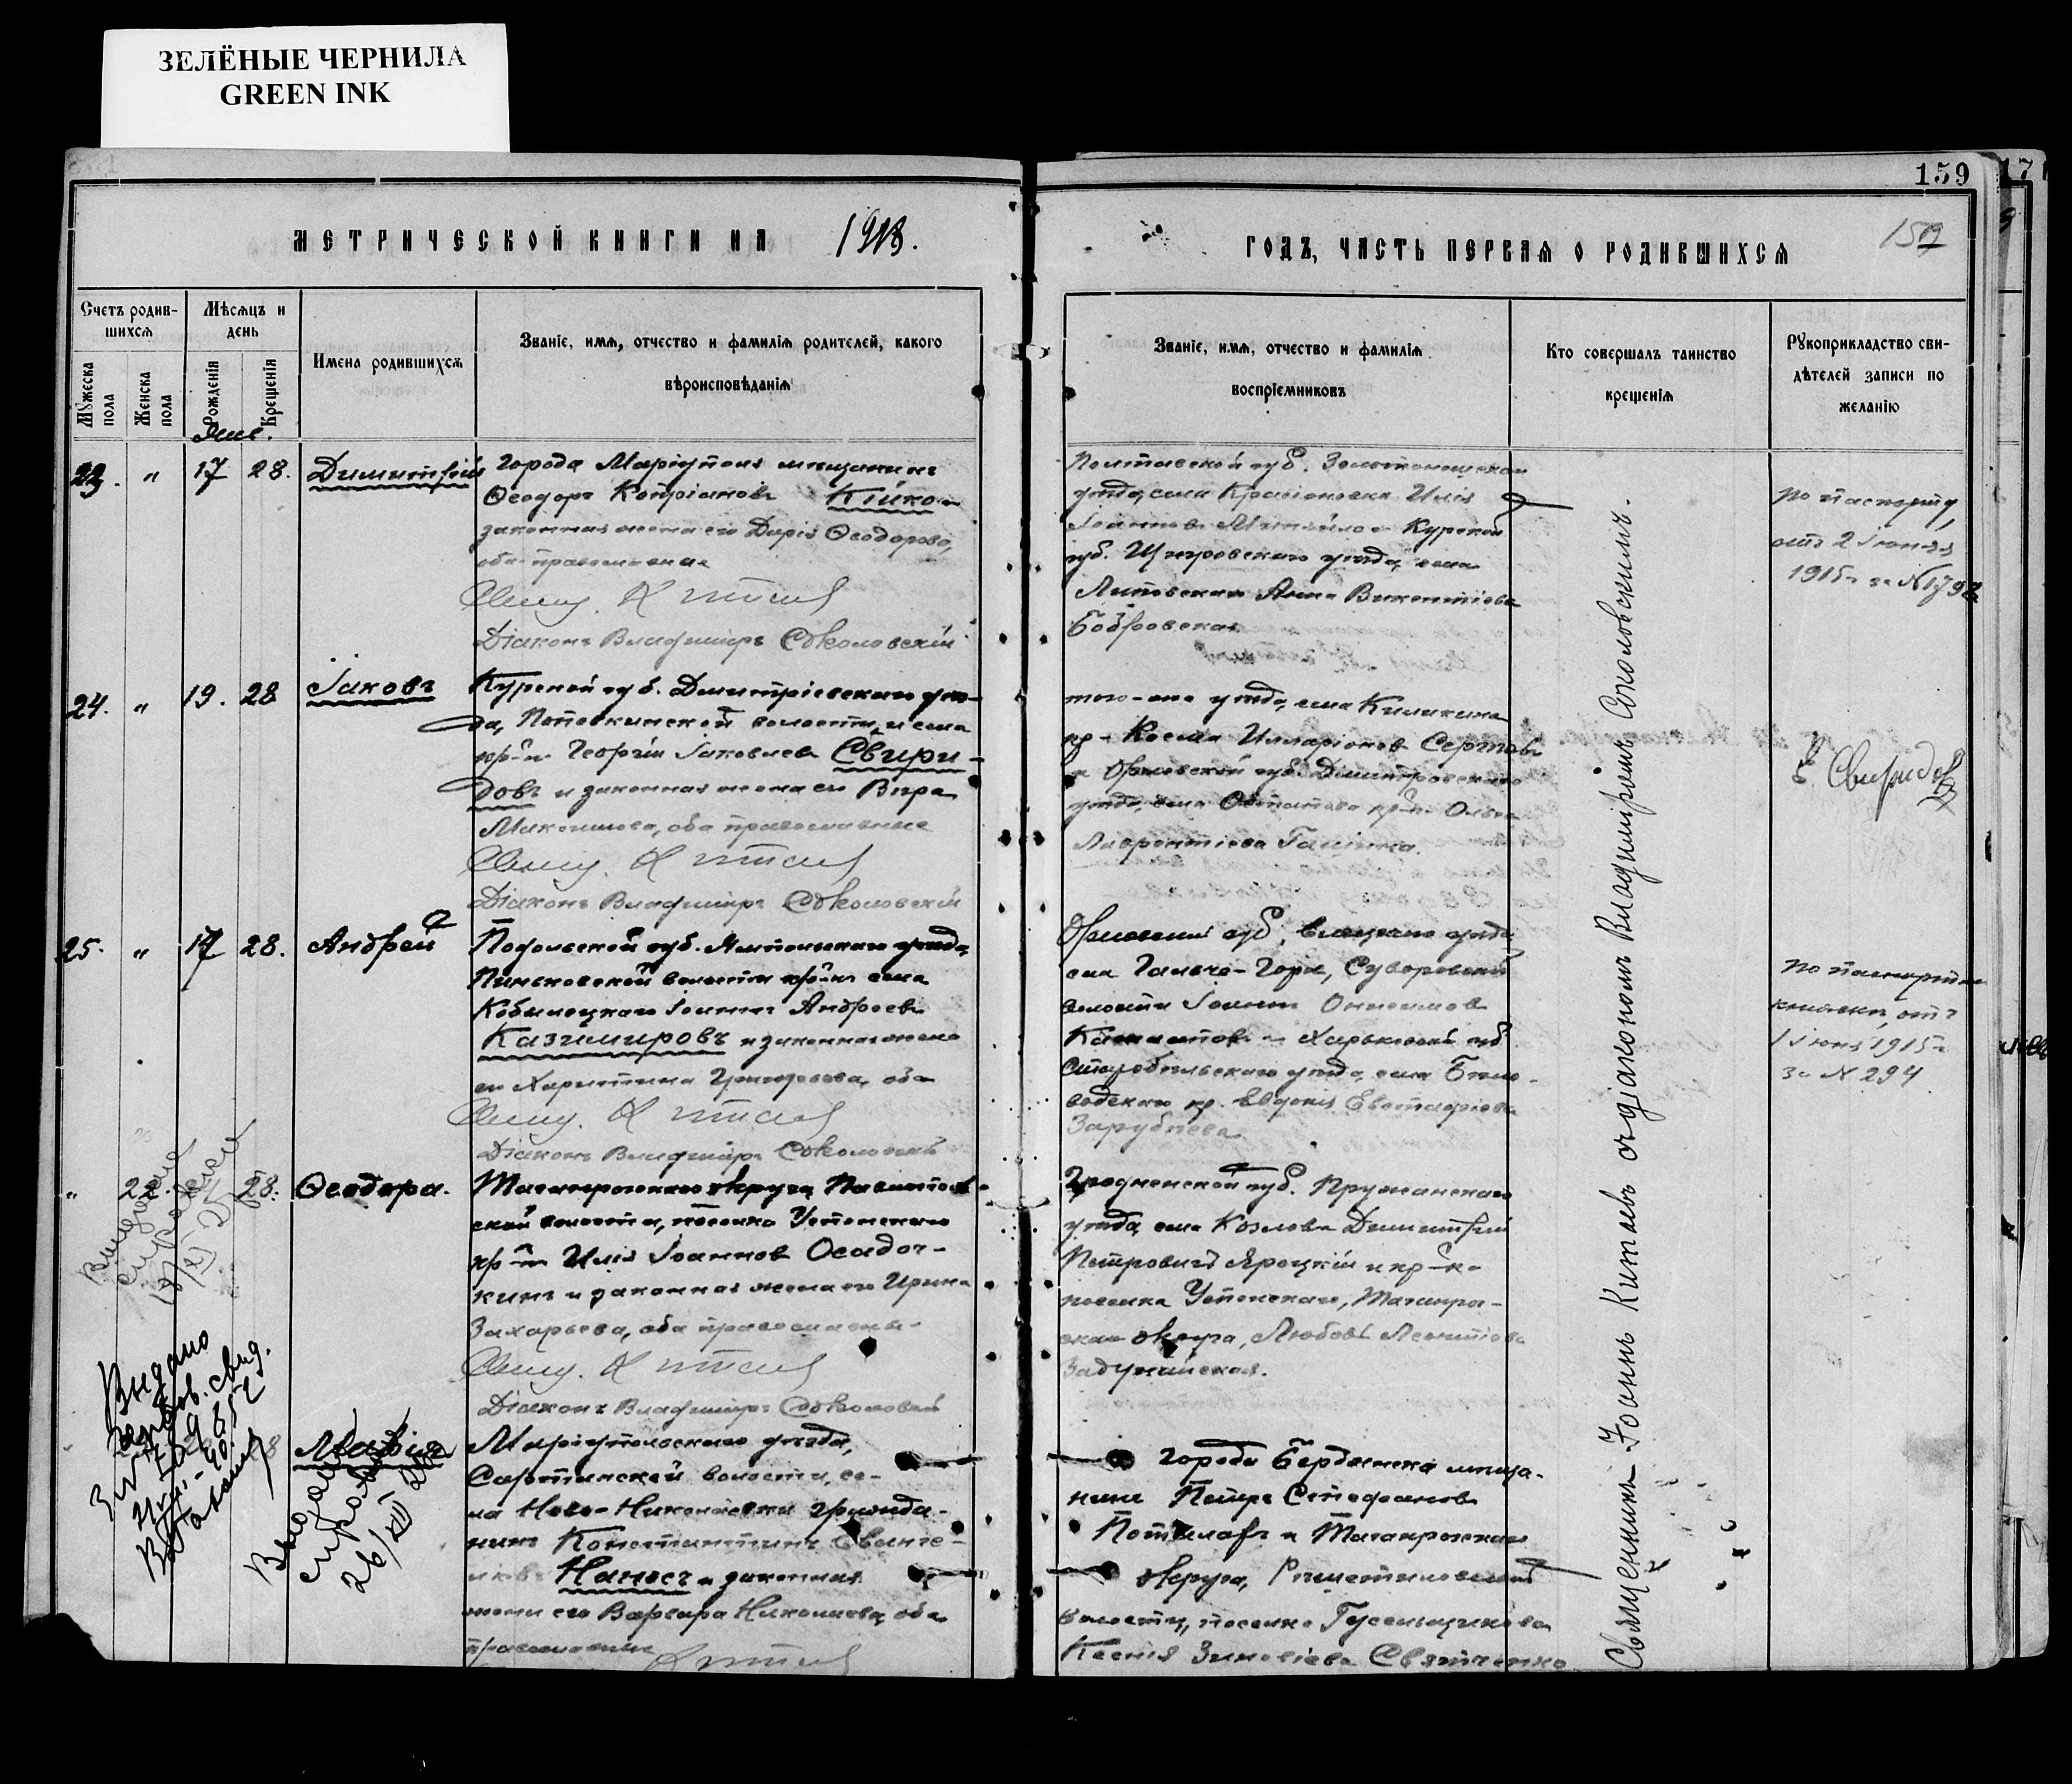 ЗЕЛЁНЫЕ ЧЕРНИЛА
GREEN INK
159
МЕТРИЧЕСКОЙ КНИГИ НА 1918.
ГОДЪ, ЧАСТЬ ПЕРВАЯ О РОДИВШИХСЯ
159
Счетъ родив-
шихся
Мужеска пола
Женска пола
Мѣсяцъ и
день
Рожденія
Крещенія
Имена родившихся
Званіе, имя, отчество и фамилія родителей, какого
вѣроисповѣданія
Званіе, имя, отчество и фамилія
воспріемниковъ
Кто совершалъ таинство
крещенія
Рукоприкладство сви-
дѣтелей записи по
желанію
Янв.
23. " 17 28. Димитрій
города Маріуполя мѣщанинъ
Ѳеодоръ Кипріановъ Кійко и
законная жена его Дарія Ѳеодорова,
оба православные
Діаконъ Владиміръ Соколовскій
Полтавской губ. Золотоношскаго
уѣзда, села Крапивовка Илія
Іоанновъ и Курской
губ. Щигровскаго уѣзда, села
Липовскаго Анна Викентіева
Бобровская
по паспорту
отъ 2 іюня
1915 г. за №1798
24. " 19. 28 Іаковъ
Курской губ. Димитріевскаго уѣз-
да, волости, села
кр-нъ Георгій Іаковлевъ Свири-
довъ и законная жена его Вѣра
Максимова, оба православные
Діаконъ Владиміръ Соколовскій
того-же уѣзда, села Киликина
кр- Косма Илларіоновъ
и Орловской губ. Димитровскаго
уѣзда, села кр-ка Ольга
Лаврентіева
Свиридовъ
25. " 17 28. Андрей
Подольской губ. Ямпольскаго уѣзда,
Пиньковской волости кр-нъ села
Кобылецкаго Іоаннъ Андреевъ
Казимировъ и законная жена
его Харитина Григорьева, оба
Діаконъ Владиміръ Соколовскій
Орловской губ, Елецкаго уѣзда
села Гальчье-Гора, Суворовской
волости Іоаннъ Онисимовъ
и Харьковской губ
Старобѣльскаго уѣзда, села Бѣло-
водскаго кр. Евдокія Евстафіева
Зарубнева
по паспортной
книжкѣ, отъ
1 іюня 1915 г.
за № 294
" 22. 28. Ѳеодора.
Таганрогскаго округа,
ской волости, поселка Успенскаго
кр-нъ Илія Іоанновъ Осадч-
кинъ и законная жена его Ирина
Захарьева, оба православны-
Діаконъ Владиміръ Соколовскій
Гродненской губ. Пружанскаго
уѣзда, села Козлова Димитрій
Петровичъ Яроцкій и кр-ка
поселка Успенскаго, Таганрог-
скаго округа, Любовь Леонтіева
Задунайская.
Выдана
справка
28 Марія
Маріупольскаго уѣзда,
Сартанской волости, се-
ла Ново-Николаевки гражда-
нинъ Константинъ Еванге-
ловъ Наносъ и законная
жена его Варвара Николаева, оба
православные
города Бердянска мѣща-
нинъ Петръ Стефановъ
и Таганрогскаго
округа,
волости, поселка Гусельщикова
Ксенія Зиновіева Святченко
Выдано
повтор. свид.
Выдана
справка
26/XII
Священникъ Іоаннъ Китаевъ съ діакономъ Владиміромъ Соколовскимъ.